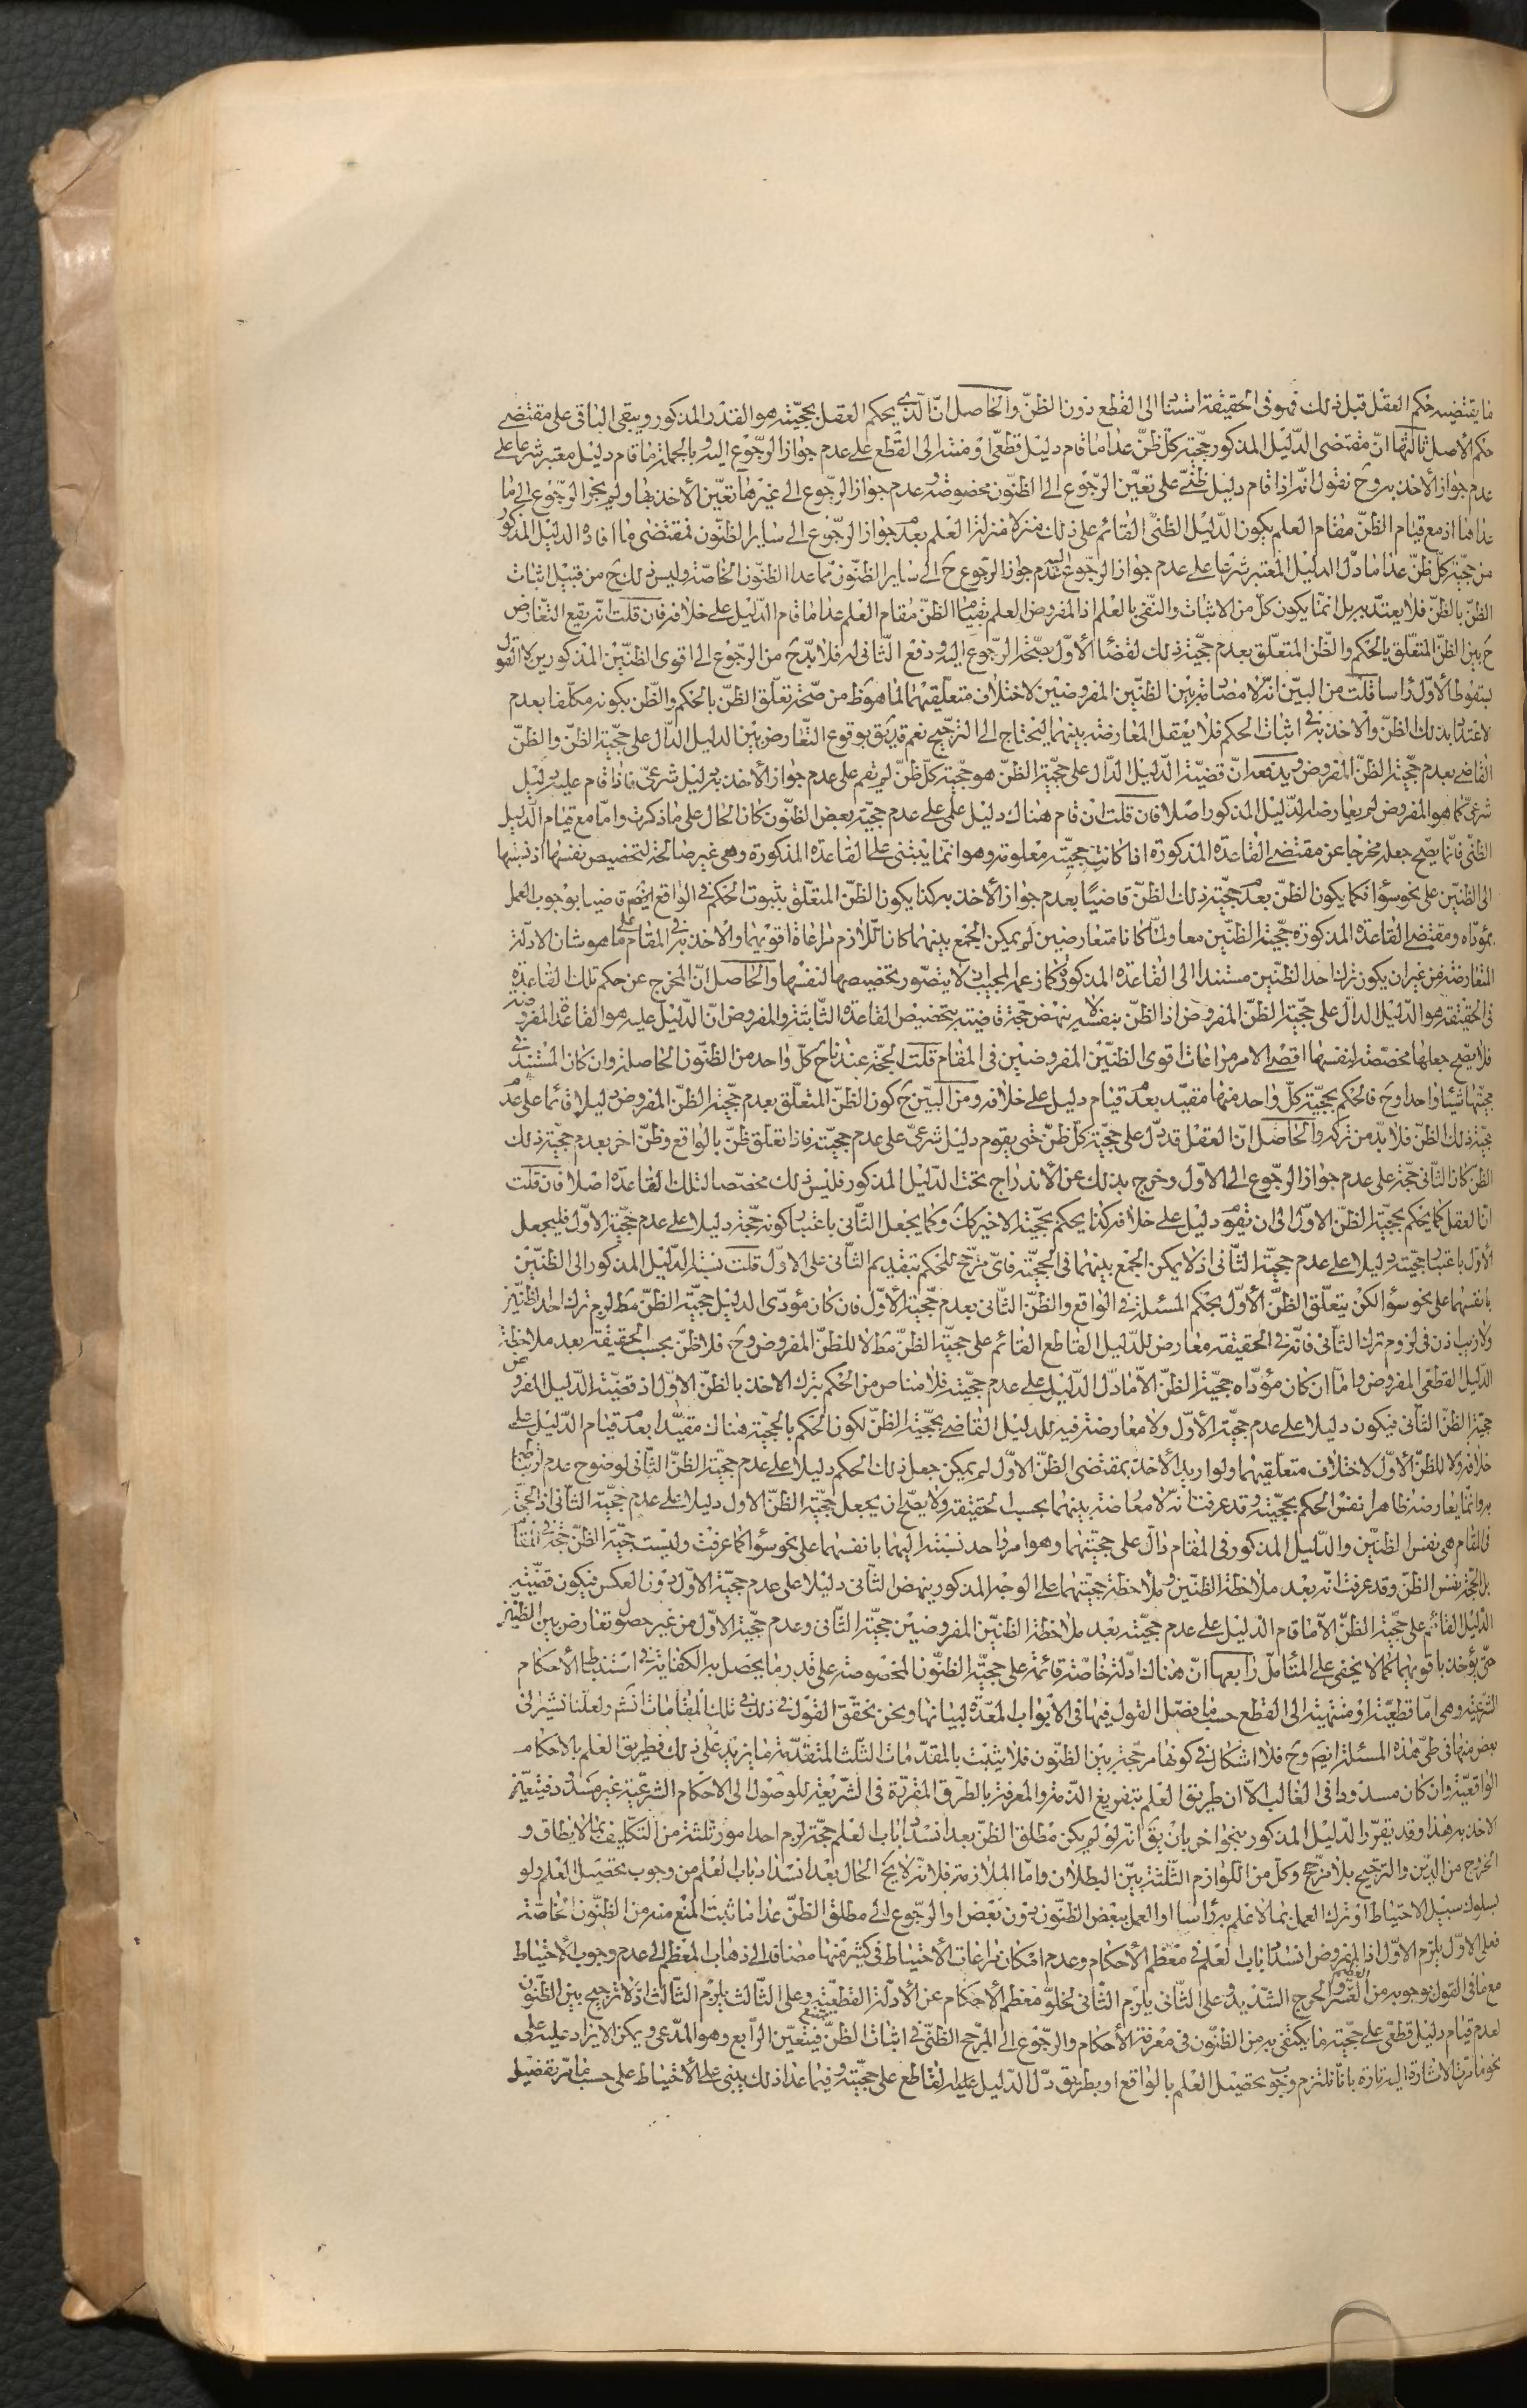 ما يقتضيه حكم العقل قبل ذلك فهو فى الحقيقة استناد الى القطع دون الظنّ والحاصل انّ الّذي يحكم العقل بحجيّته هو القدر المذكور ويبقى الباقى على مقتضى
حكم الأصل ثالثها انّ مقتضى الدّليل المذكور حجيّة كلّ ظنّ عدا ما قام دليل قطعىّ او منته الى القطع على عدم جواز الرّجوع اليه وبالجملة ما قام دليل معتبر شرعا على
عدم جواز الأخذ به وح نقول انّه اذا قام دليل ظنّىّ على تعيّن الرّجوع الى الظنّون مخصوصة وعدم جواز الرّجوع الى غيرها تعيّن الأخذ بها ولم يجز الرّجوع الى ما
عداها اذ مع قيام الظنّ مقام العلم يكون الدّليل الظنّىّ القائم على ذلك منزلا منزلة العلم بعدم جواز الرّجوع الى ساير الظنّون فمقتضى ما افاده الدليل المذكور
من حجيّة كلّ ظنّ عدا ما دلّ الدليل المعتبر شرعا على عدم جواز الرجوع اليه عدم جواز الرجوع ح الى ساير الظنّون مما عدا الظنّون الخاصّة وليس ذلك ح من قبيل اثبات
الظنّ بالظنّ فلا يعتدّ به بل انّما يكون كلّ من الاثبات والنّفى بالعلم اذ المفروض العلم بقيام الظنّ مقام العلم عدا ما قام الدّليل على خلافه فان قلت انّه يقع التّعارض
ح بين الظنّ المتعلّق بالحكم والظّن المتعلّق بعدم حجيّة ذلك لقضاء الأوّل بصحّة الرّجوع اليه ودفع الثّانى له فلا بدّ ح من الرّجوع الى اقوى الظنّيّن المذكورين لا القول
بسقوط الأوّل رأسا قلت من البيّن انّه لا مضادّة بين الظنّيّن المفروضين لاختلاف متعلّقيهما لما هو ظ من صحّة تعلّق الظنّ بالحكم والظّن بكونه مكلّفا بعدم
لاعتداد بذلك الظنّ والاخذ به فى اثبات الحكم فلا يعقل المعارضة بينهما ليحتاج الى الترجيح نعم قد يتّفق بوقوع التّعارض بين الدليل الدّال على حجيّة الظنّ والظنّ
القاضى بعدم حجيّة الظنّ المفروض ويدفعه انّ قضيّة الدّليل الدّال على حجيّة الظنّ هو حجيّة كلّ ظنّ لم يقم على عدم جواز الأخذ به دليل شرعىّ فاذا قام عليه دليل
شرعىّ كما هو المفروض لم يعارضه الدّليل المذكور اصلا فان قلت ان قام هناك دليل علمى على عدم حجيّة بعض الظنّون كان الحال على ما ذكرت وامّا مع قيام الدّليل
الظنّى فانّما يصّح جعله مخرجا عن مقتضى القاعدة المذكورة اذا كانت حجيّته معلومة وهو انّما يبتنى على القاعدة المذكورة وهى غير صالحة لتخصيص نفسها اذ نسبتها
الى الظنّيّن على نحو سواء فكما يكون الظنّ بعدم حجيّة ذلك الظنّ قاضيًا بعدم جواز الأخذ به كذا يكون الظنّ المتعلّق بثبوت الحكم فى الواقع ايضم قاضيا بوجوب العمل
بمؤدّاه ومقتضى القاعدة المذكورة حجيّة الظنّيّن معا ولمّا كانا متعارضين لم يمكن الجمع بينهما كان اللّازم مراعاة اقويهما والاخذ به فى المقام على ما هو شان الادلّة
المتعارضة من غير ان يكون ترك احد الظنّيّن مستندا الى القاعدة المذكورة كما زعمه المجيب اذ لا يتصّور تخصيصها لنفسها والحاصل انّ المخرج عن حكم تلك القاعدة
فى الحقيقة هو الدّليل الدالّ على حجيّة الظنّ المفروض اذ الظنّ بنفسه لا ينهض حجّة قاضية بتخصيص القاعدة الثّابتة والمفروض انّ الدّليل عليه هو القاعدة المفروضة
فلا يصّح جعلها مخصّصة لنفسها اقصى الامر مراعات اقوى الظنّيّن المفروضين فى المقام قلت الحجّة عندنا ح كلّ واحد من الظنّون الخاصلة وان كان المستند فى
حجيّتها شيئا واحدا وح فالحكم بحجيّة كلّ واحد منها مقيّد بعدم قيام دليل على خلافه ومن البيّن ح كون الظنّ المتعلّق بعدم حجيّة الظنّ المفروض دليلا قائما على عدم
حجيّة ذلك الظنّ فلا بدّ من تركه والحاصل انّ العقل قد دلّ على حجيّة كلّ ظنّ حتى يقوم دليل شرعىّ على عدم حجيّته فاذا تعلّق ظنّ بالواقع وظنّ اخر بعدم حجيّة ذلك
الظن كان الثّانى حجّة على عدم جواز الرّجوع الى الاوّل وخرج بذلك عن الاندراج تحت الدّليل المذكور فليس ذلك مخصّصا لتلك القاعدة اصلا فان قلت
انّ العقل كما يحكم بحجيّة الظنّ الاوّل الى ان يقوم دليل على خلافه كذا يحكم بحجيّة الاخير كك وكما يجعل الثّانى باعتبار كونه حجّة دليلا على عدم حجيّة الاوّل فليجعل
الأوّل باعتبار حجيّته دليلا على عدم حجيّة الثّانى اذ لا يمكن الجمع بينهما فى الحجيّة فاىّ مرجّح للحكم بتقديم الثّانى على الاوّل قلت نسبة الدّليل المذكور الى الظنّيّن
بانفسهما على نحو سواء لكن يتعلّق الظنّ الأوّل بحكم المسئلة فى الواقع والظنّ الثّانى بعدم حجيّة الأوّل فان كان مؤدّى الدليل حجيّة الظنّ مط لزم ترك احد الظنّيّن
ولا ريب اذن فى لزوم ترك الثّانى فانّه فى الحقيقة معارض للدّليل القاطع القائم على حجيّة الظنّ مط لا للظنّ المفروض وح فلا ظنّ بحسب الحقيقة بعد ملاحظة
الدّليل القطعى المفروض وامّا ان كان مؤدّاه حجيّة الظنّ الّا ما دلّ الدّليل على عدم حجيّته فلا مناص من الحكم بترك الاخذ بالظنّ الاوّل اذ قضيّة الدّليل المفروض
حجيّة الظنّ الثّانى فيكون دليلا على عدم حجيّة الأوّل ولا معارضة فيه للدليل القاضى بحجيّة الظنّ لكون الحكم بالحجيّة هناك مقيّدا بعدم قيام الدّليل على
خلافه ولا للظنّ الأوّل لاختلاف متعلّقيهما ولو اريد الأخذ بمقتضى الظنّ الاوّل لم يمكن جعل ذلك الحكم دليلا على عدم حجيّة الظنّ الثّانى لوضوح عدم ارتباطه
به وانّما يعارضه ظاهرا نفس الحكم بحجيّته وقد عرفت انّه لا معارضة بينهما بحسب الحقيقة ولا يصّح ان يجعل حجيّة الظنّ الاول دليلا على عدم حجيّة الثّانى اذ الحجّة
فى المقام هى نفس الظنّيّن والدّليل المذكور فى المقام دالّ على حجيّتهما وهو امر واحد نسبته اليهما بانفسهما على نحو سواء كما عرفت وليست حجيّة الظنّ حجّة فى المقام
بل الحجّة نفس الظنّ وقد عرفت انّه بعد ملاحظة الظنّيّن وملاحظة حجيّتهما على الوجه المذكور ينهض الثّانى دليلا على عدم حجيّة الاوّل دون العكس فيكون قضيّة
الدّليل القائم على حجيّة الظنّ الّا ما قام الدّليل على عدم حجيّته بعد ملاحظة الظنّيّن المفروضين حجيّة الثّانى وعدم حجيّة الاوّل من غير حصول تعارض بين الظنّيّن
حتّى يؤخذ باقويهما كما لا يخفى على المتأمل رابعها انّ هناك ادلّة خاصّة قائمة على حجيّة الظنّون المخصوصة على قدر ما يحصل به الكفاية فى استنباط الأحكام
الشّرعيّة وهى امّا قطعيّة او منتهية الى القطع حسب ما فصّل القول فيها فى الابواب المعدّة لبيانها ونحن نحقّق القول فى ذلك فى تلك المقامات انشم ولعلّنا نشير الى
بعض منها فى طىّ هذه المسئلة ايضم وح فلا اشكال فى كونها مرجّحة بين الظنّون فلا يثبت بالمقدّمات الثّلث المتقدّمة ما يزيد على ذلك فطريق العلم بالاحكام
الواقعيّة وان كان مسدودا فى الغالب الّا ان طريق العلم بتفريغ الذّمة والمعرفة بالطّرق المقرّرة فى الشّريعة للوصول الى الاحكام الشرعيّة غير مسدود فتعيّن
الاخذ به هذا وقد يقرّر الدّليل المذكور بنحو اخر بان يقم انّه لو لم يكن مطلق الظنّ بعد انسداد باب العلم حجّة لزم احد امور ثلثة من التّكليف بما لا يطاق و
الخروج من الدّين والترجيح بلا مرجّح وكلّ من اللّوازم الثّلثة بيّن البطلان وامّا الملازمة فلانّه لا يخ الحال بعد انسداد باب العلم من وجوب تحصيل العلم ولو
بسلوك سبيل الاحتياط او ترك العمل بما لا علم به رأسا او العمل ببعض الظنّون دون بعض او الرّجوع الى مطلق الظنّ عدا ما ثبت المنع منه من الظنّون الخاصّة
فعلى الاوّل يلزم الاوّل اذ المفروض انسداد باب العلم فى معظم الأحكام وعدم امكان مراعات الاحتياط فى كثير منها مضافا الى ذهاب المعظم الى عدم وجوب الاحتياط
مع ما فى القول بوجوبه من العسر العظيم والحرج الشّديد وعلى الثّانى يلزم الثّانى لخلوّ معظم الأحكام عن الأدلّة القطعيّة وعلى الثّالث يلزم الثّالث اذ لا ترجيح بين الظنّون
لعدم قيام دليل قطعى على حجيّة ما يكتفى به من الظنّون فى معرفة الأحكام والرّجوع الى المرّجح الظنّى فى اثبات الظنّ فيتعيّن الرّابع وهو المدّعى ويمكن الايراد عليه على
نحو ما مرّت الاشارة اليه تارة بانّا نلتزم وجوب تحصيل العلم بالواقع او بطريق دلّ الدّليل القاطع على حجيّته وفيما عدا ذلك يبنى على الاحتياط على حسب ما مرّ تفصيل